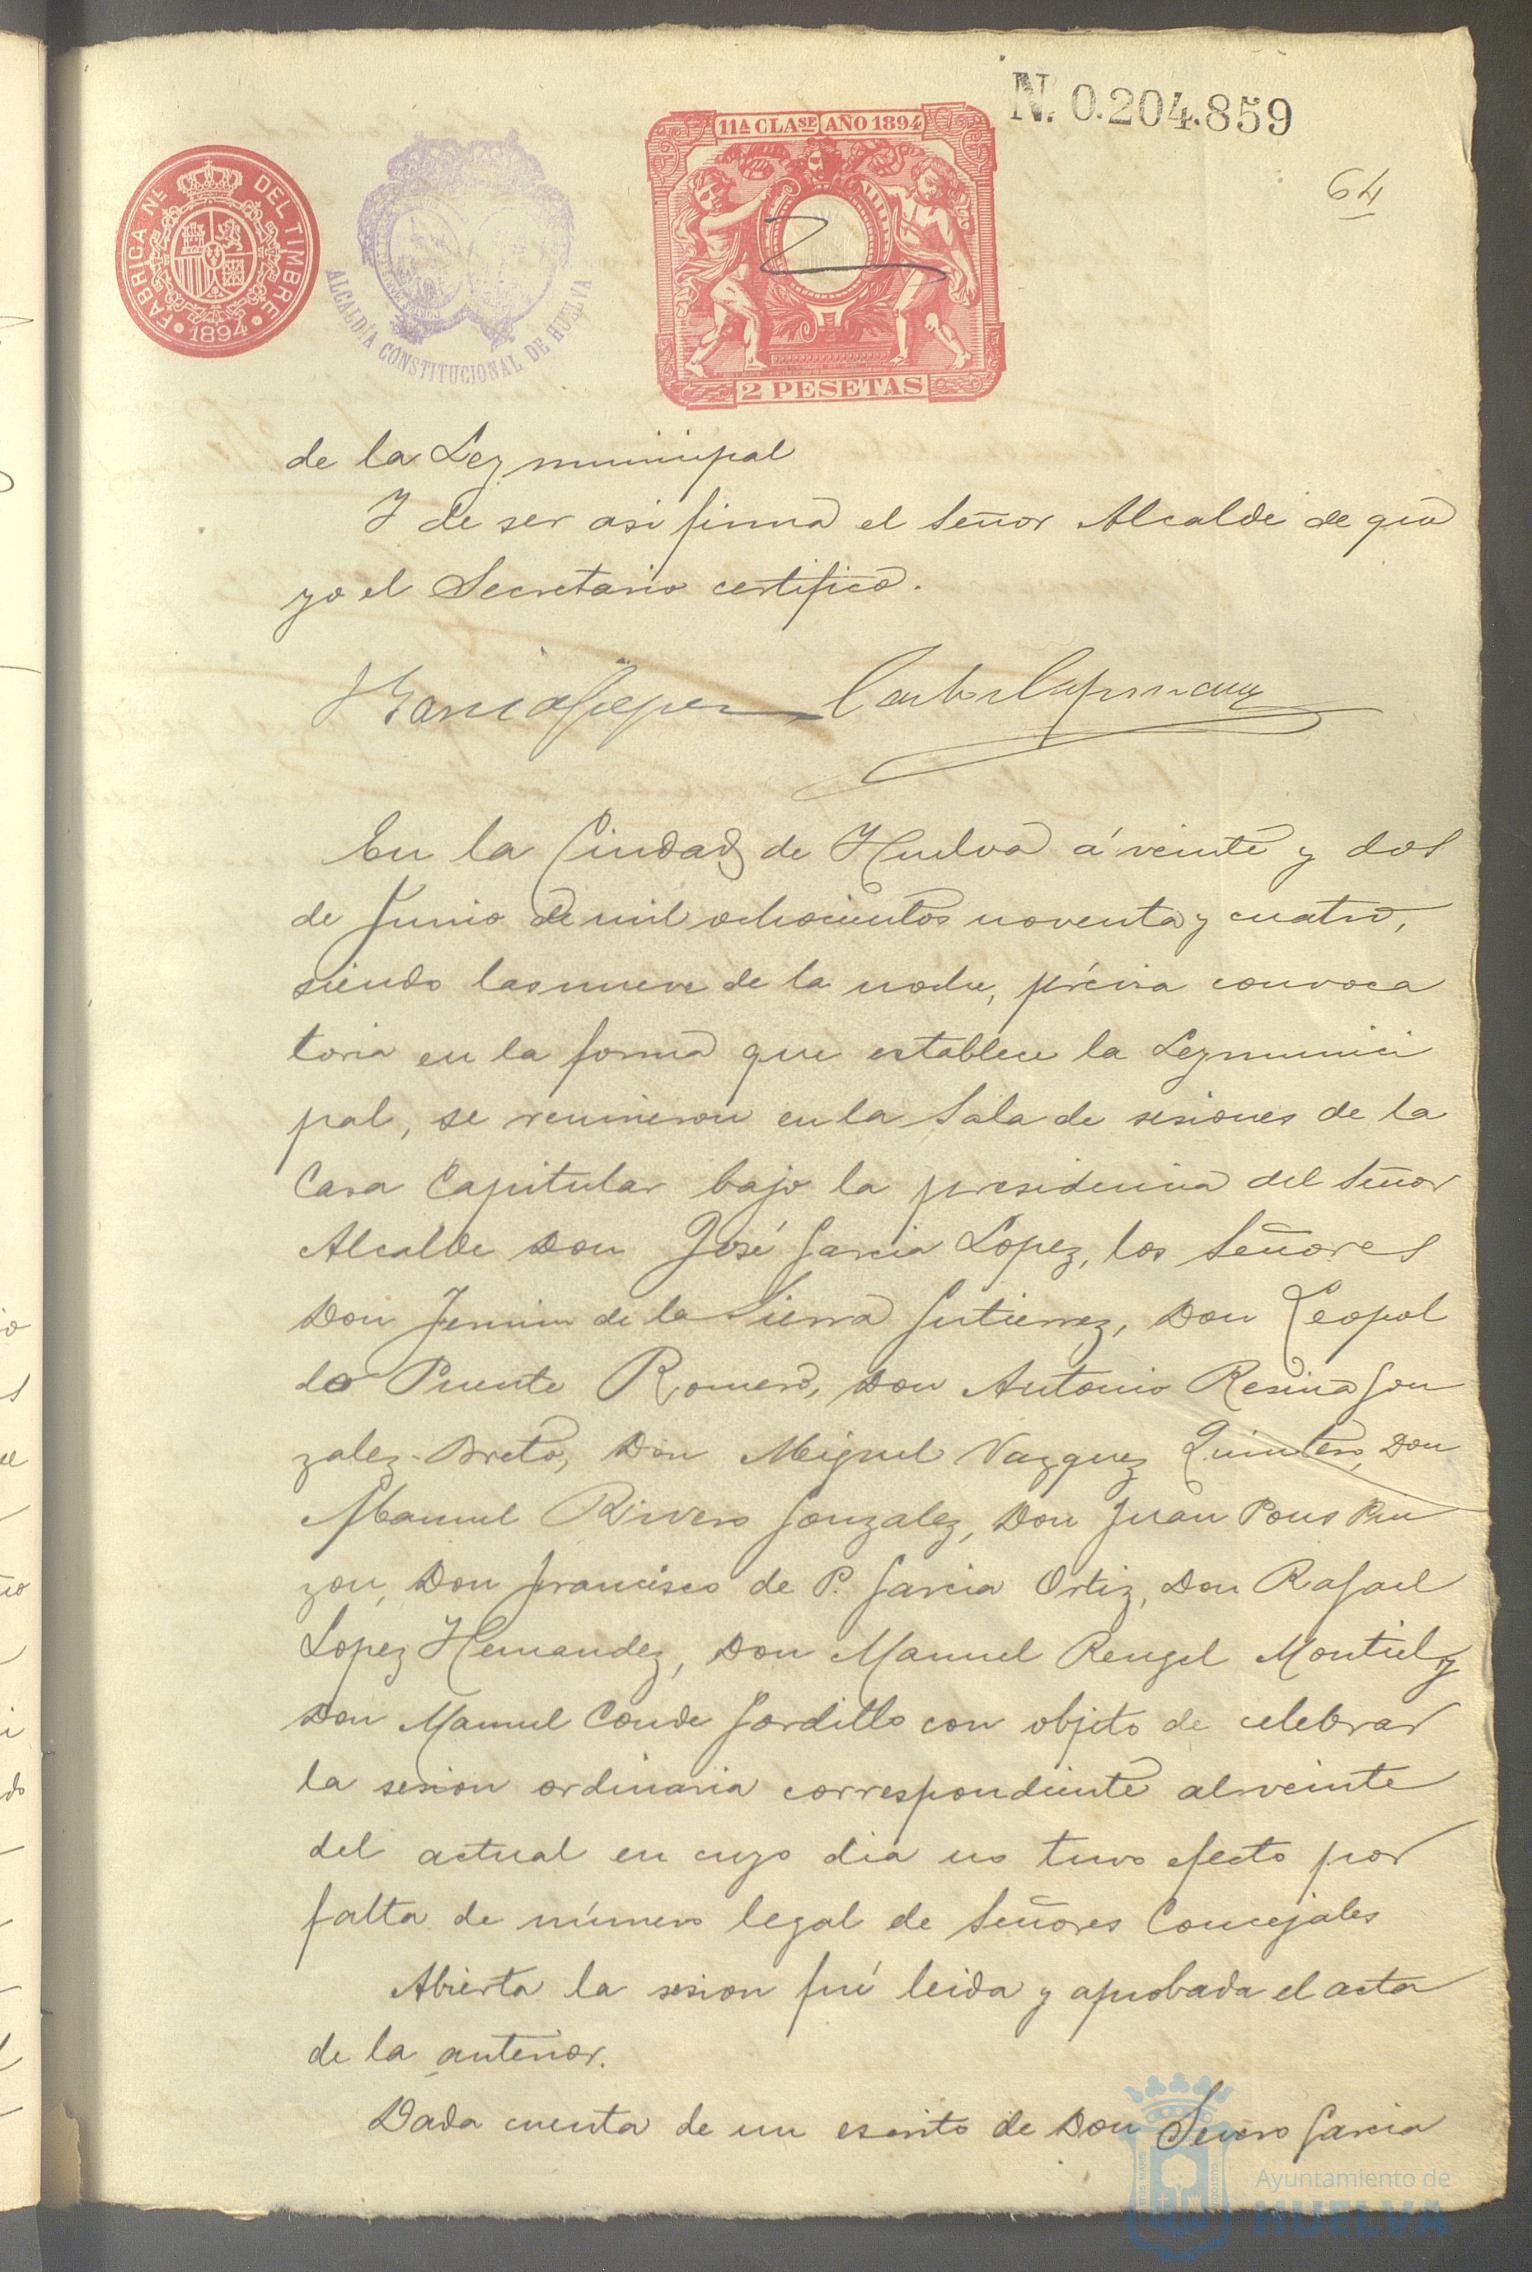 N. 0.204.859
11A CLASE AÑO 1894
64
FABRICA NL DEL TIMBRE
1894
ALCALDÍA CONSTITUCIONAL DE HUELVA
2 PESETAS
de la Ley municipal
Y de ser asi firma el Señor Alcalde de que
yo el Secretario certifico.
J Garcia Lopez
En la Ciudad de Huelva á veinte y dos
de Junio de mil ochocientos noventa y cuatro,
siendo las nueve de la noche, prévia convoca
toria en la forma que establece la Ley munici
pal, se reunieron en la Sala de sesiones de la
Casa Capitular bajo la presidencia del Señor
Alcalde Don José Garcia Lopez, los Señores
Don Fermin de la Sierra Gutierrez, Don Leopol
do Puente Romero, Don Antonio Resina Gon
zalez-Breto, Don Miguel Vazquez Quintero, Don
Manuel Rivero Gonzalez, Don Juan Pons Pin
zon, Don Francisco de P. Garcia Ortiz, Don Rafael
Lopez Hernandez, Don Manuel Rengel Montiel y
Don Manuel Conde Gordillo con objeto de celebrar
la sesion ordinaria correspondiente al veinte
del actual en cuyo dia no tuvo efecto por
falta de número legal de Señores Concejales
Abierta la sesion fué leida y aprobada el acta
de la anterior.
Dada cuenta de un escrito de Don Severo Garcia
Ayuntamiento de
HUELVA